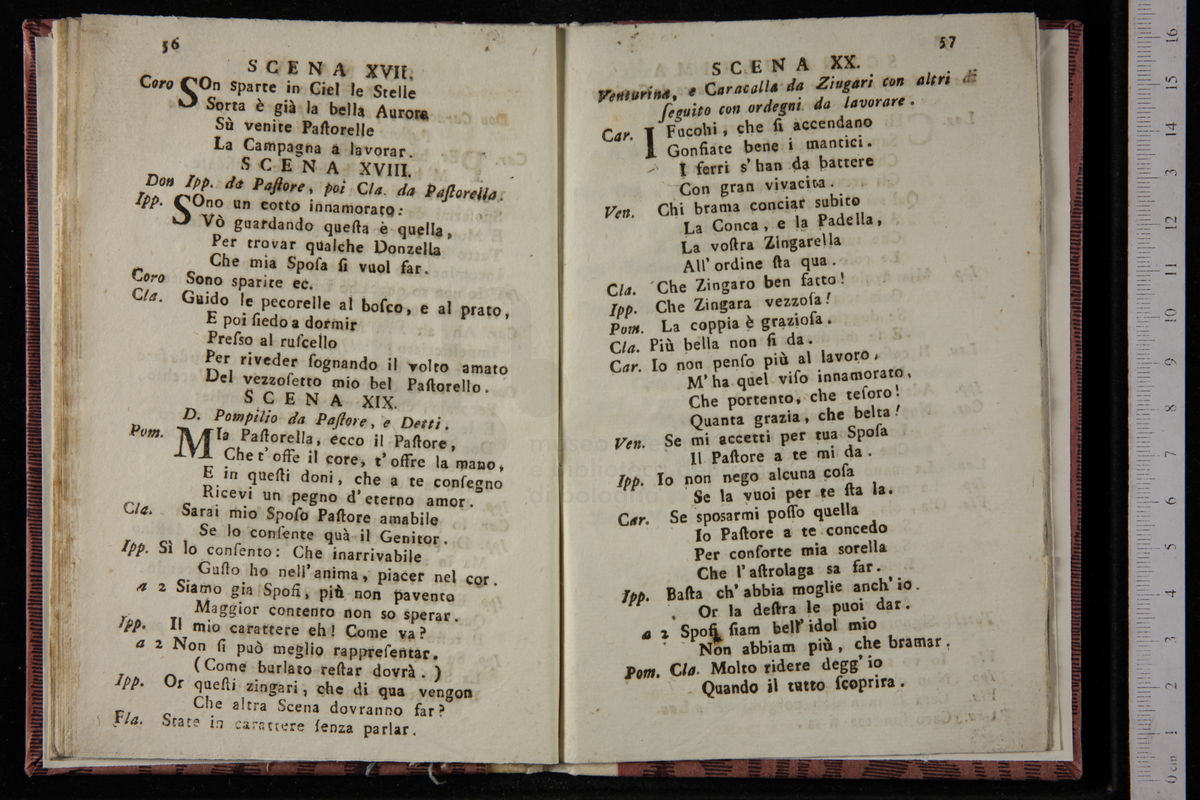 56
SCENA XVII.
Coro SOn sparte in Ciel le Stelle
Sorta è già la bella Aurora
Sù venite Paſtorelle
La Campagna a lavorar.
SCENA XVIII.
Don Ipp. da Paſtore, poi Cla. da Paſtorella.
Ipp. SOno un cotto innamorato:
Vò guardando queſta è quella,
Per trovar qualche Donzella
Che mia Spoſa ſi vuol far.
Coro Sono sparite ec.
Cla. Guido le pecorelle al boſco, e al prato,
E poi ſiedo a dormir
Preſso al ruſcello
Per riveder ſognando il volto amato
Del vezzoſetto mio bel Paſtorello.
SCENA XIX.
D. Pompilio da Paſtore, e Detti.
Pom. MIa Paſtorella, ecco il Paſtore,
Che t' offe il core, t' offre la mano,
E in queſti doni, che a te conſegno
Ricevi un pegno d' eterno amor.
Cla. Sarai mio Spoſo Paſtore amabile
Se lo conſente quà il Genitor.
Ipp. Sì lo conſento: Che inarrivabile
Guſto ho nell' anima, piacer nel cor.
a 2 Siamo gia Spoſi, più non pavento
Maggior contento non so sperar.
Ipp. Il mio carattere eh! Come va?
a 2 Non ſi può meglio rappreſentar.
(Come burlato reſtar dovrà.)
Ipp. Or queſti zingari, che di qua vengon
Che altra Scena dovranno far?
Fla. State in carattere ſenza parlar.
57
SCENA XX.
Venturina, e Caracalla da Zingari con altri di
ſeguito con ordegni da lavorare.
Car. I Fucohi, che ſi accendano
Gonfiate bene i mantici.
I ferri s' han da battere
Con gran vivacita.
Ven. Chi brama conciar subito
La Conca, e la Padella,
La voſtra Zingarella
All' ordine ſta qua.
Cla. Che Zingaro ben fatto!
Ipp. Che Zingara vezzoſa!
Pom. La coppia è grazioſa.
Cla. Più bella non ſi da.
Car. Io non penſo più al lavoro,
M' ha quel viſo innamorato,
Che portento, che teſoro!
Quanta grazia, che belta!
Ven. Se mi accetti per tua Spoſa
Il Paſtore a te mi da.
Ipp. Io non nego alcuna coſa
Se la vuoi per te ſta la.
Car. Se sposarmi poſſo quella
Io Paſtore a te concedo
Per conſorte mia sorella
Che l' aſtrolaga sa far.
Ipp. Baſta ch' abbia moglie anch' io.
Or la deſtra le puoi dar.
a 2 Spoſi ſiam bell' idol mio
Non abbiam più, che bramar.
Pom. Cla. Molto ridere degg' io
Quando il tutto ſcoprira.